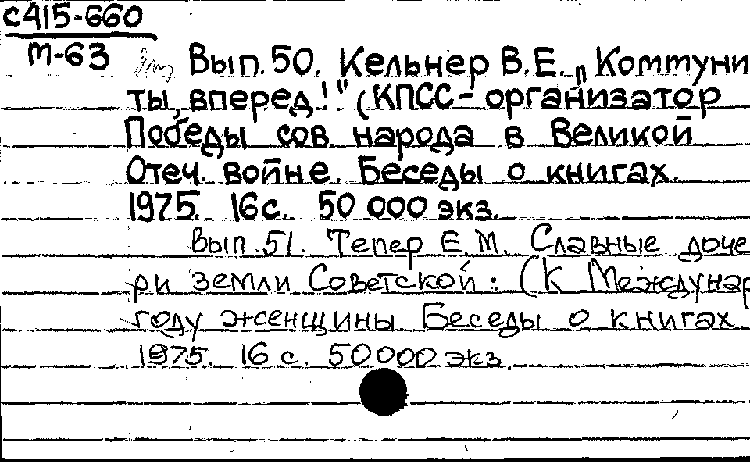 С415-660
М-63
Вып. 50. Кельнер В.Е. „Коммуни
ты, вперед!" (КПСС - организатор
Победы сов. народа в Великой
Отеч. войне. Беседы о книгах.
1975. 16 с. 50 000 экз.
Вып. 51. Тепер Е.М. Славные доче
ри земли Советской: (К Междунар
году женщины. Беседы о книгах
1975. 16 с. 50 000 экз.